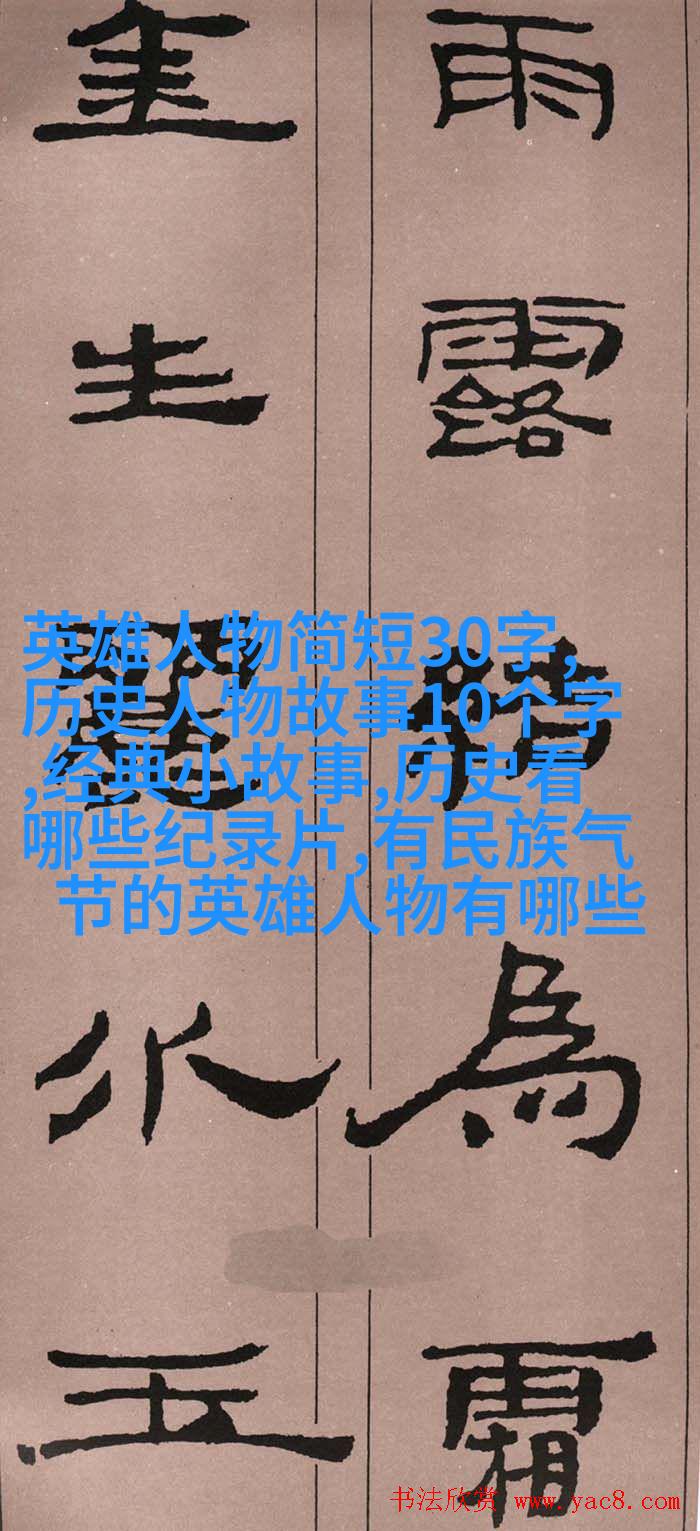 雨露結爲霜
金生麗水玉
英雄人物简短30字,
历史人物故事10个字
,经典小故事,历史看
哪些纪录片,有民族气
节的英雄人物有哪些
书法欣赏 www.yac8.com